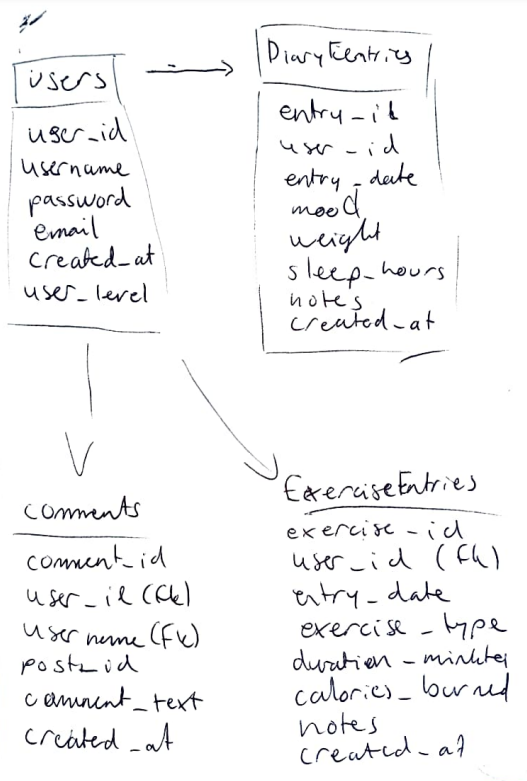 Users
user_id
username
password
email
created_at
user_level
DiaryEentries
entry_id
user_id
entry_date
mood
weight
sleep_hours
notes
created_at
comments
comment_id
user_id (fk)
username (fk)
post_id
comment_text
created_at
ExerciseEntries
exercise_id
user_id (fk)
entry_date
exercise_type
duration_minutes
calories_burned
notes
created_at